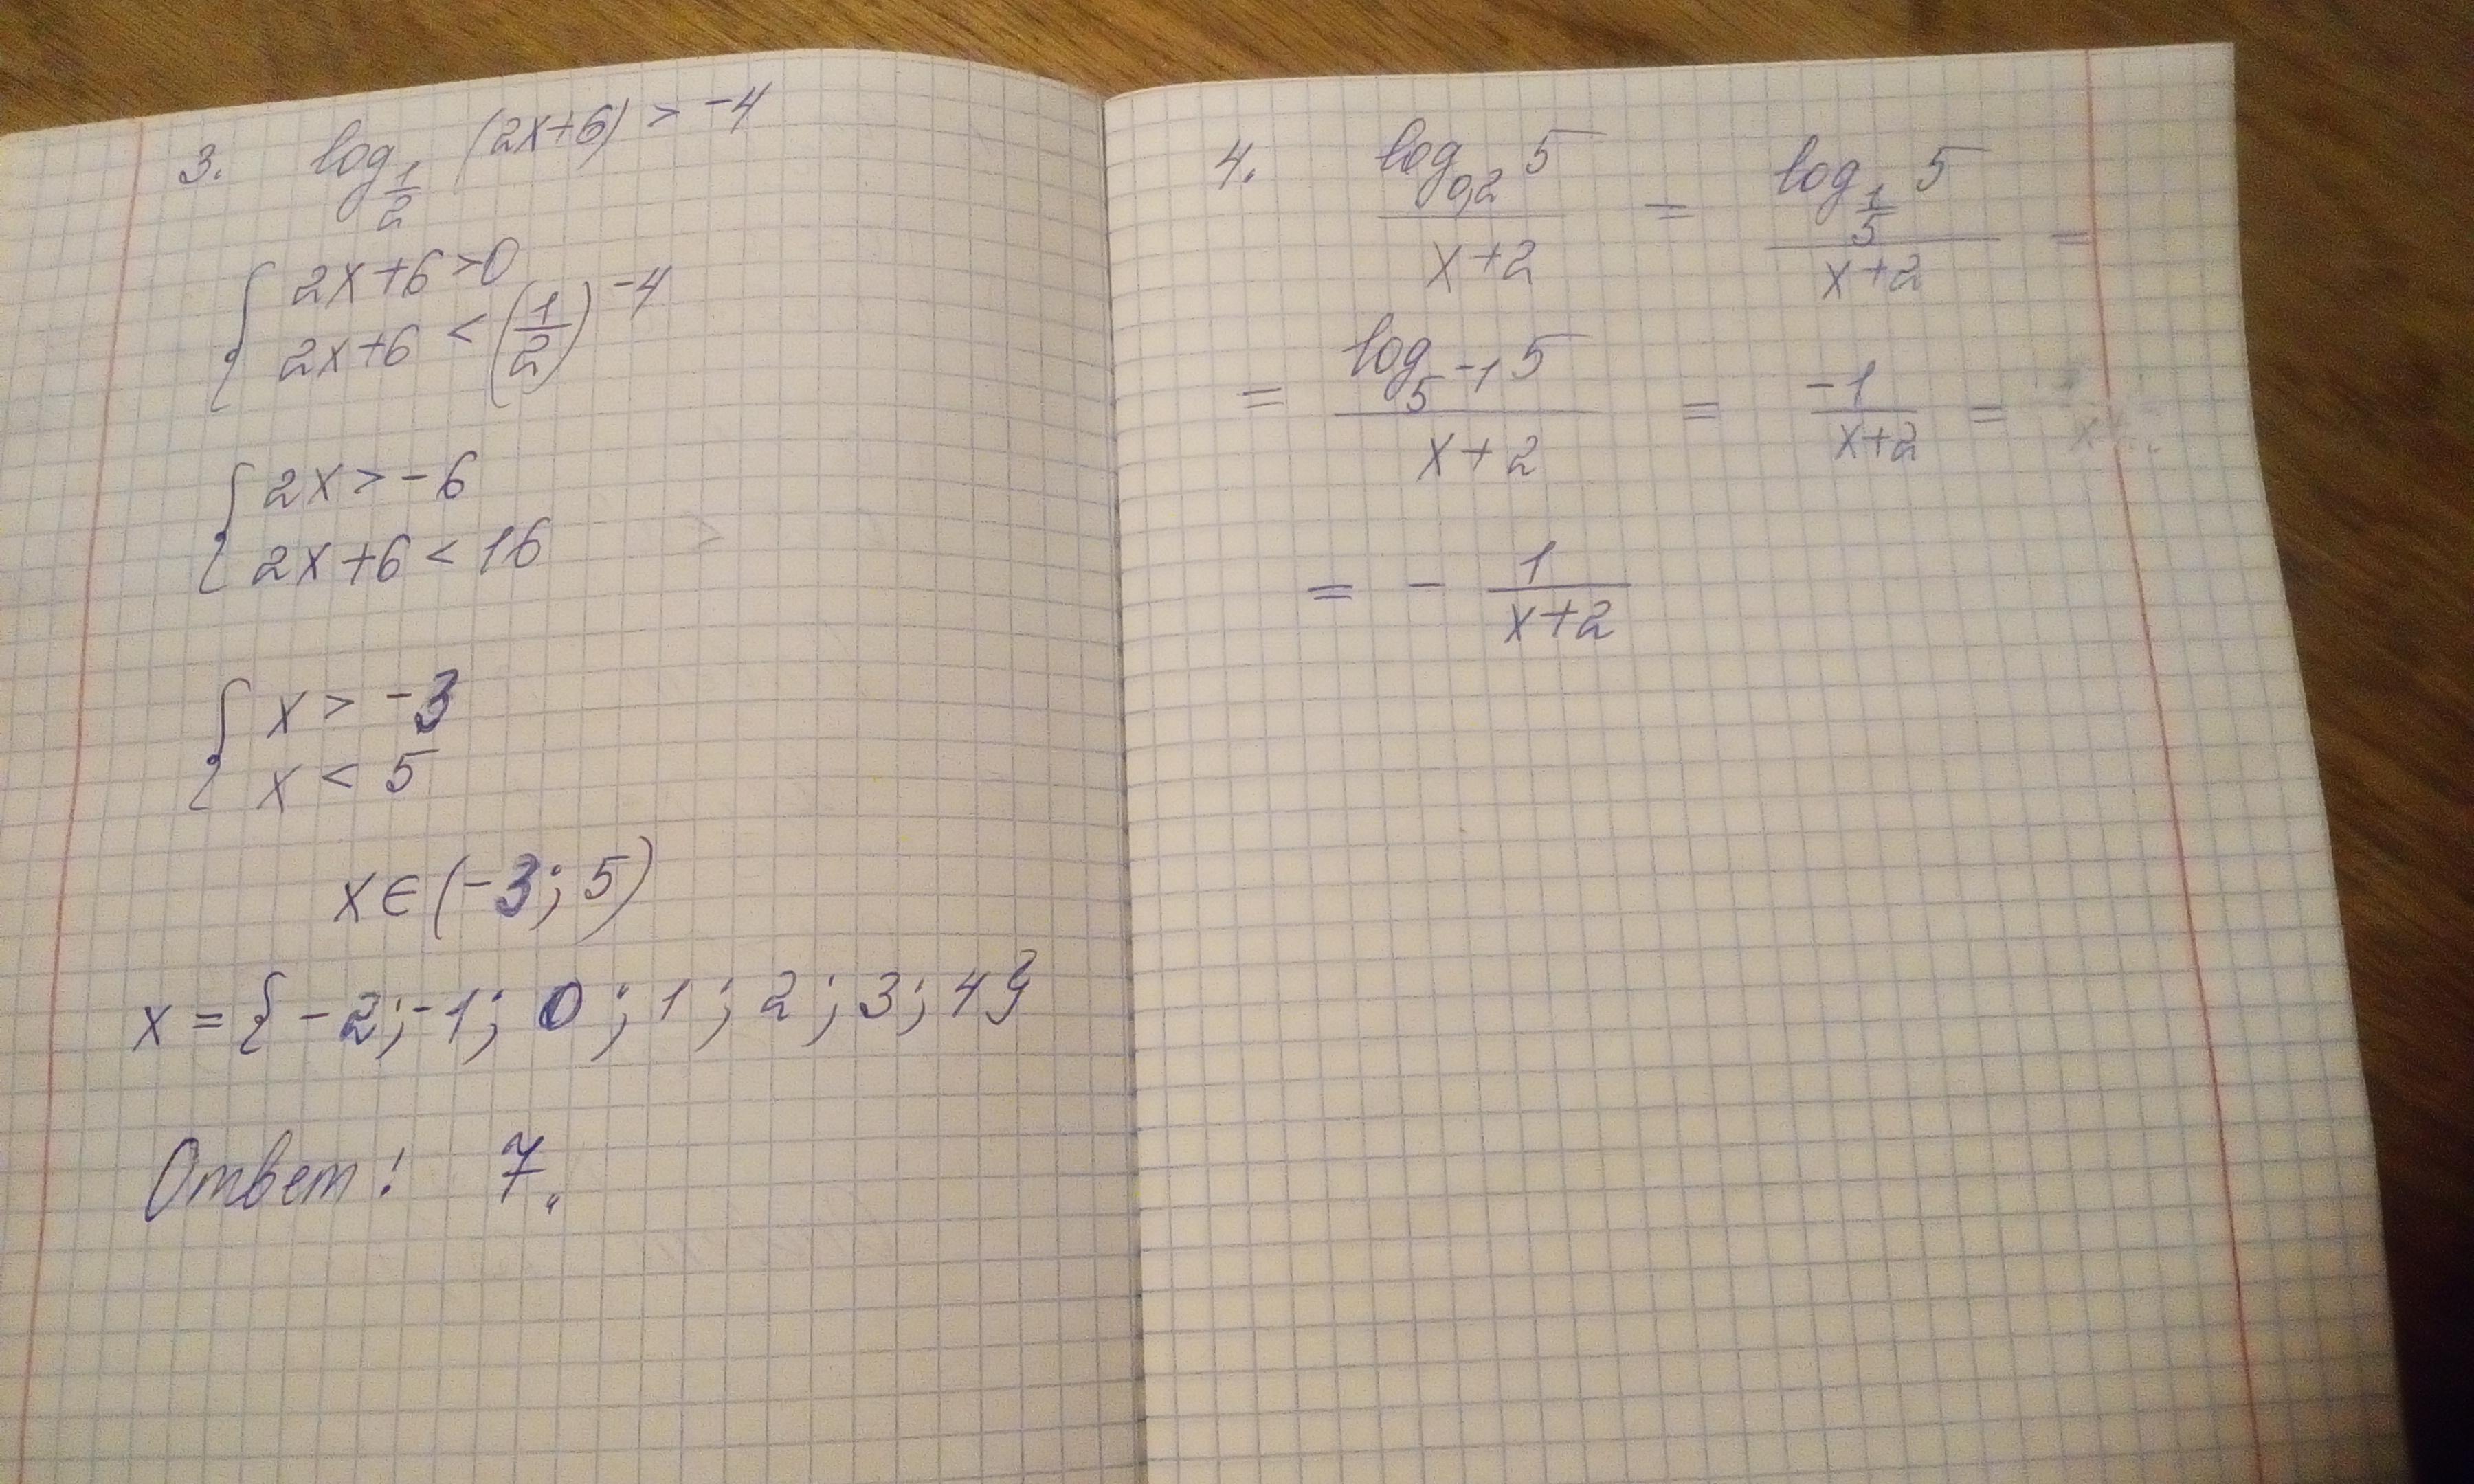 3. log_{1/2} (2x+6) > -4
{ 2x+6 > 0
2x+6 < (1/2)^{-4}
{ 2x > -6
2x+6 < 16
{ x > -3
x < 5
x ∈ (-3; 5)
x = {-2; -1; 0; 1; 2; 3; 4}
Ответ: 7.
4. log_{0,2} 5 / x+2 = log_{1/5} 5 / x+2 =
= log_{5^{-1}} 5 / x+2 = -1 / x+2 =
= - 1 / x+2